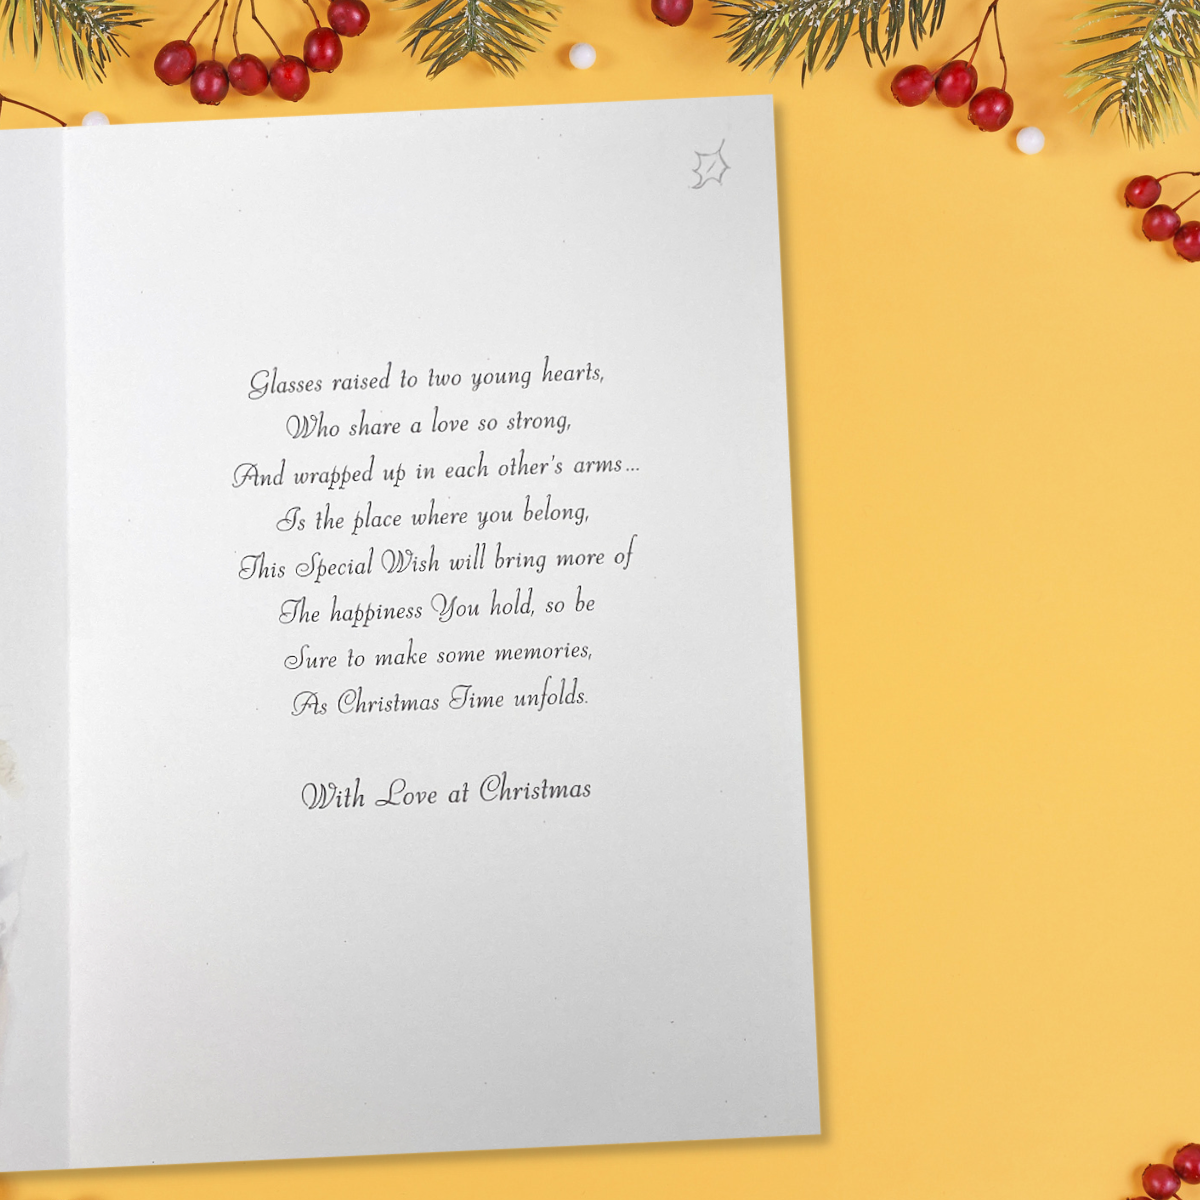 Glasses raised to two young hearts,
Who share a love so strong,
And wrapped up in each other's arms...
Is the place where you belong,
This Special Wish will bring more of
The happiness You hold, so be
Sure to make some memories,
As Christmas Time unfolds.
With Love at Christmas